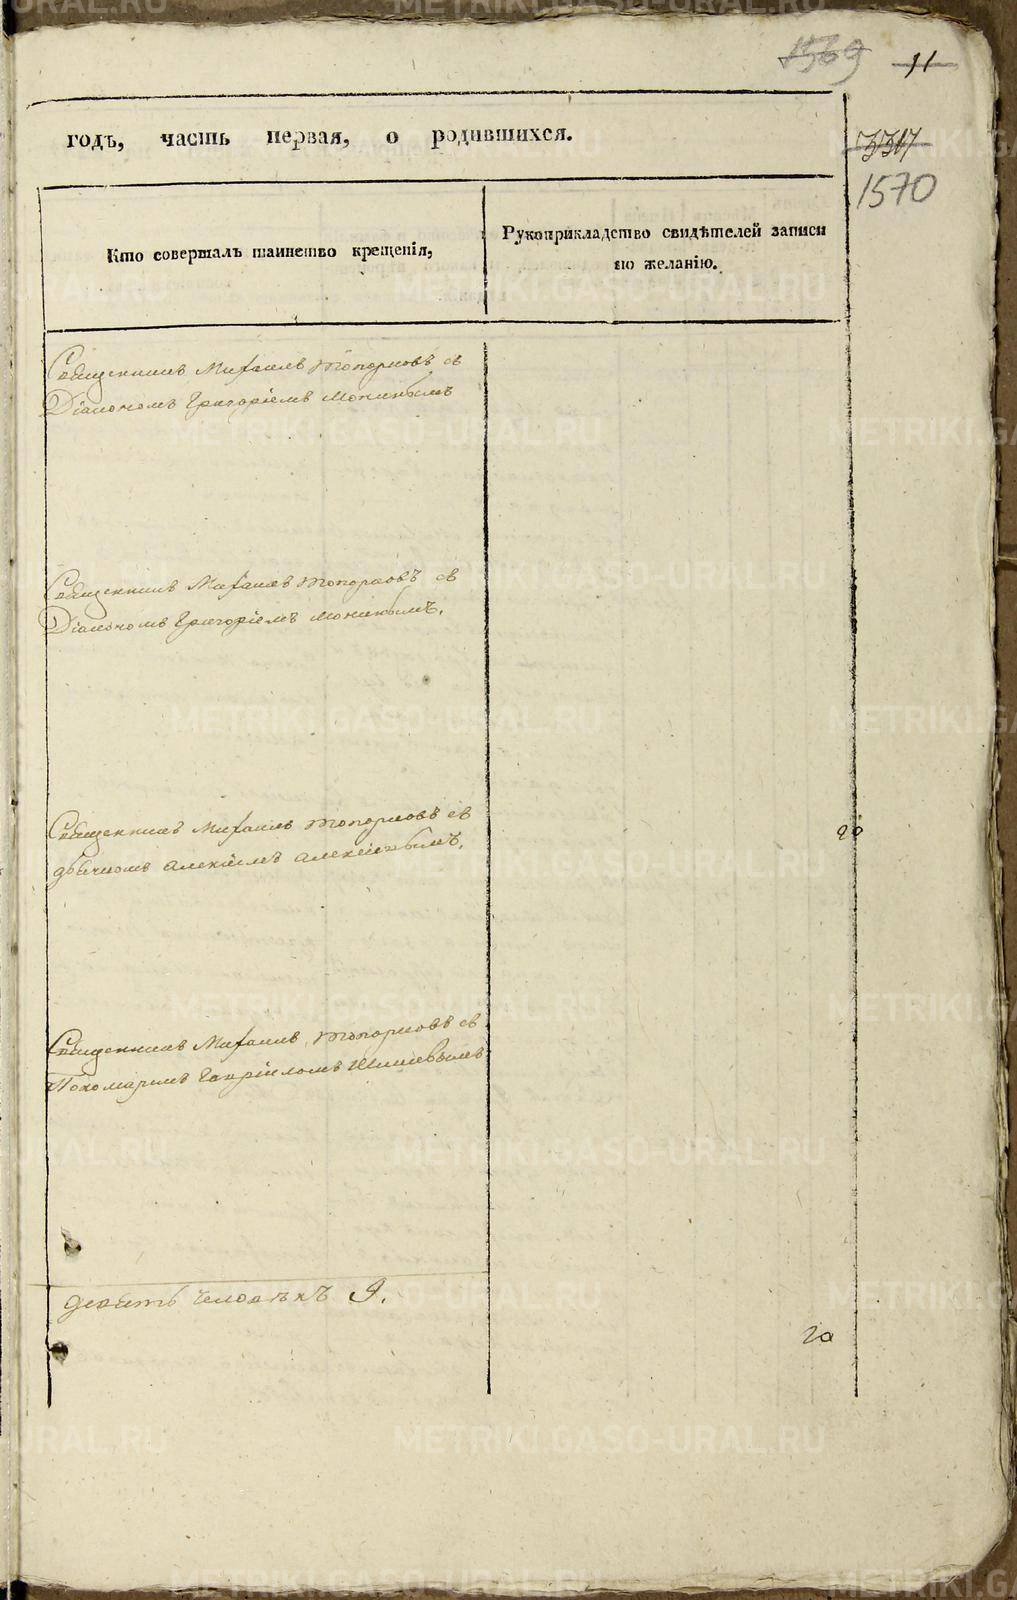 1569 11
годъ, часть первая, о родившихся.
3317
1570
Кто совершалъ таинство крещенія,
Рукоприкладство свидѣтелей записи
по желанію.
Священникъ Михаилъ Топорковъ съ
Діакономъ Григоріемъ
Священникъ Михаилъ Топорковъ съ
Діакономъ Григоріемъ
Священникъ Михаилъ Топорковъ съ
дьячкомъ Алексіемъ Алексіевымъ.
Священникъ Михаилъ Топорковъ съ
Пономаремъ Гавріиломъ
девять человѣкъ 9.
METRIKI.GASO-URAL.RU